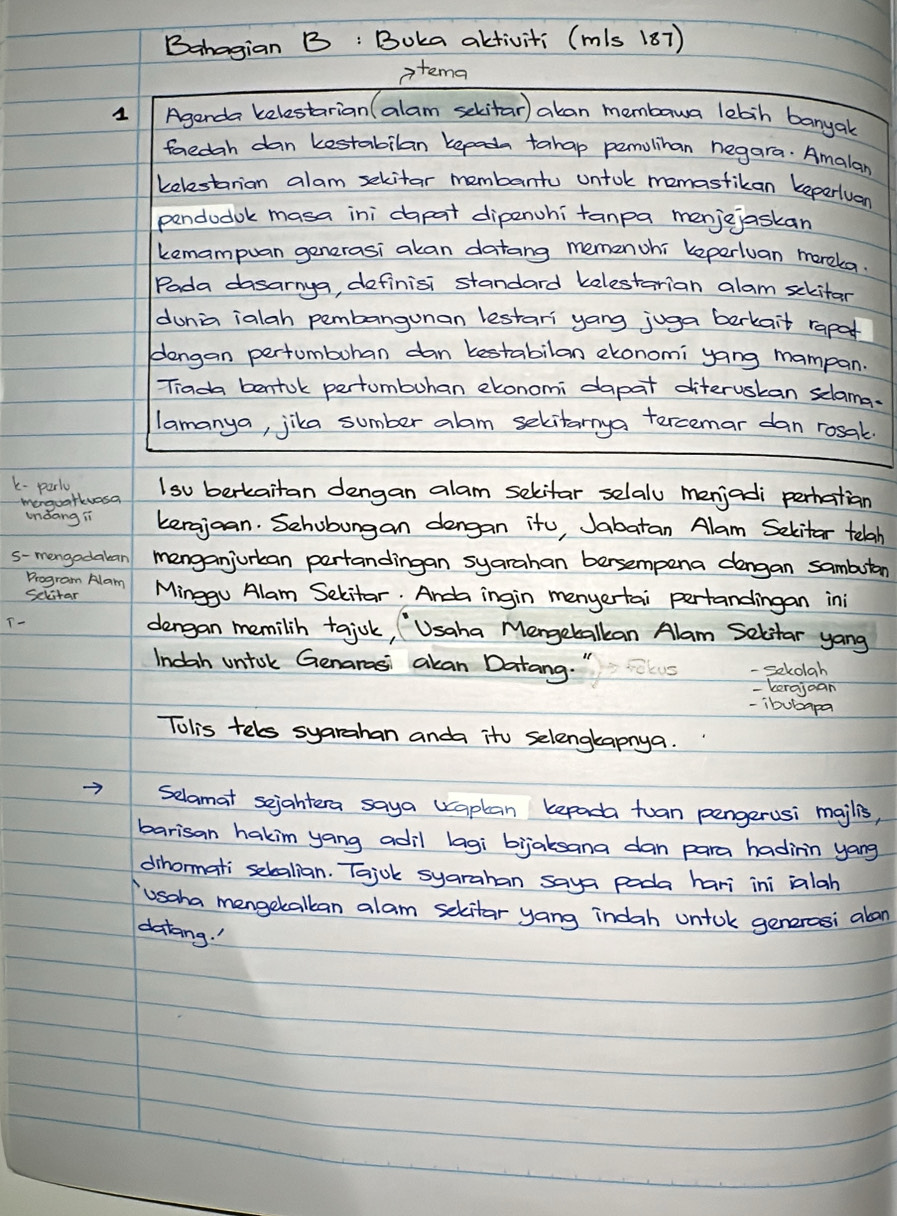 Bahagian B : Buka aktiviti (m/s 187)
→tema
1 Agenda kelestarian (alam sekitar) akan membawa lebih banyak
faedah dan kestabilan kepada tahap pemulihan negara. Amalan
kelestarian alam sekitar membantu untuk memastikan keperluan
penduduk masa ini dapat dipenuhi tanpa menjejaskan
kemampuan generasi akan datang memenuhi keperluan mereka.
Pada dasarnya, definisi standard kelestarian alam sekitar
dunia ialah pembangunan lestari yang juga berkait rapat
dengan pertumbuhan dan kestabilan ekonomi yang mampan.
Tiada bentuk pertumbuhan ekonomi dapat diteruskan selama-
lamanya, jika sumber alam sekitarnya tercemar dan rosak.
k- perlu
menguatkuasa
undang ii
s- mengadakan
Program Alam
Sekitar
I-
Isu berkaitan dengan alam sekitar selalu menjadi perhatian
kerajaan. Sehubungan dengan itu, Jabatan Alam Sekitar telah
menganjurkan pertandingan syarahan bersempena dengan sambutan
Minggu Alam Sekitar. Anda ingin menyertai pertandingan ini
dengan memilih tajuk, ("Usaha Mengekalkan Alam Sekitar yang
Indah untuk Genarasi akan Datang.") → Fokus
- sekolah
- kerajaan
- ibubapa
Tulis teks syarahan anda itu selengkapnya.
→ Selamat sejahtera saya ucapkan kepada tuan pengerusi majlis,
barisan hakim yang adil lagi bijaksana dan para hadirin yang
dihormati sekalian. Tajuk syarahan saya pada hari ini ialah
'usaha mengekalkan alam sekitar yang indah untuk generasi akan
datang.'